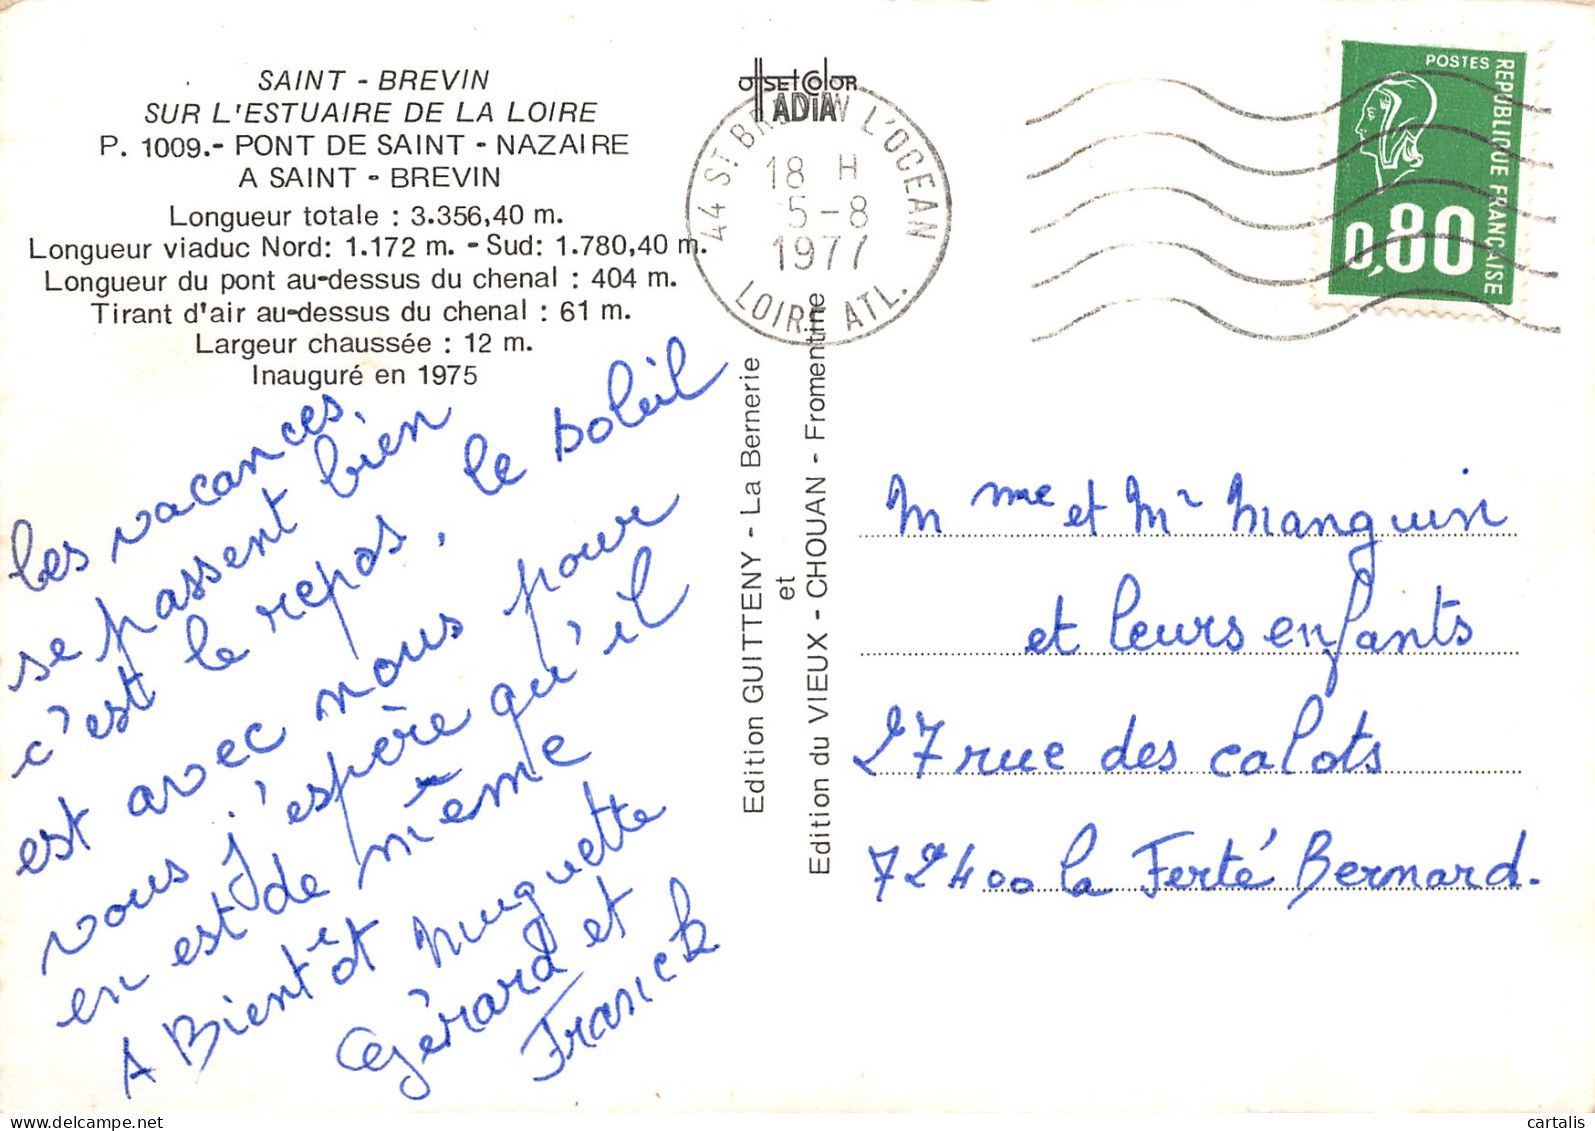 SAINT - BREVIN
SUR L'ESTUAIRE DE LA LOIRE
P. 1009.- PONT DE SAINT - NAZAIRE
A SAINT - BREVIN
Longueur totale : 3.356,40 m.
Longueur viaduc Nord: 1.172 m. - Sud: 1.780,40 m.
Longueur du pont au-dessus du chenal : 404 m.
Tirant d'air au-dessus du chenal : 61 m.
Largeur chaussée : 12 m.
Inauguré en 1975
Les vacances
se passent bien
c'est le repos, le soleil
est avec nous pour
vous j'espère qu'il
en est de même
A Bientôt Muguette
Gérard et
Franck
OffsetColor
ADIA
44 ST BREVIN L'OCEAN
18 H
5-8
1977
LOIRE ATL.
Edition GUITTENY - La Bernerie
et
Edition du VIEUX - CHOUAN - Fromentine
POSTES
REPUBLIQUE FRANÇAISE
0,80
Mme et Mr Manguin
et leurs enfants
27 rue des calots
72400 la Ferté Bernard.
cartalis